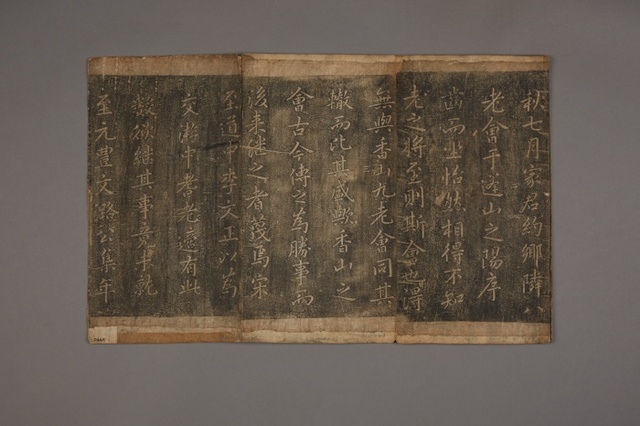 秋七月家君約鄉隣八
老會于遂山之陽序
齒而坐怡然相得不知
老之將至則斯會也得
無與香山九老會同其
轍而比其盛歟香山之
會古今傳之為勝事而
後來継之者蔑焉宋
至道中李文正以為
交游中孝老遠有此
擬欲継其事竟未就
至元豊文潞公集年